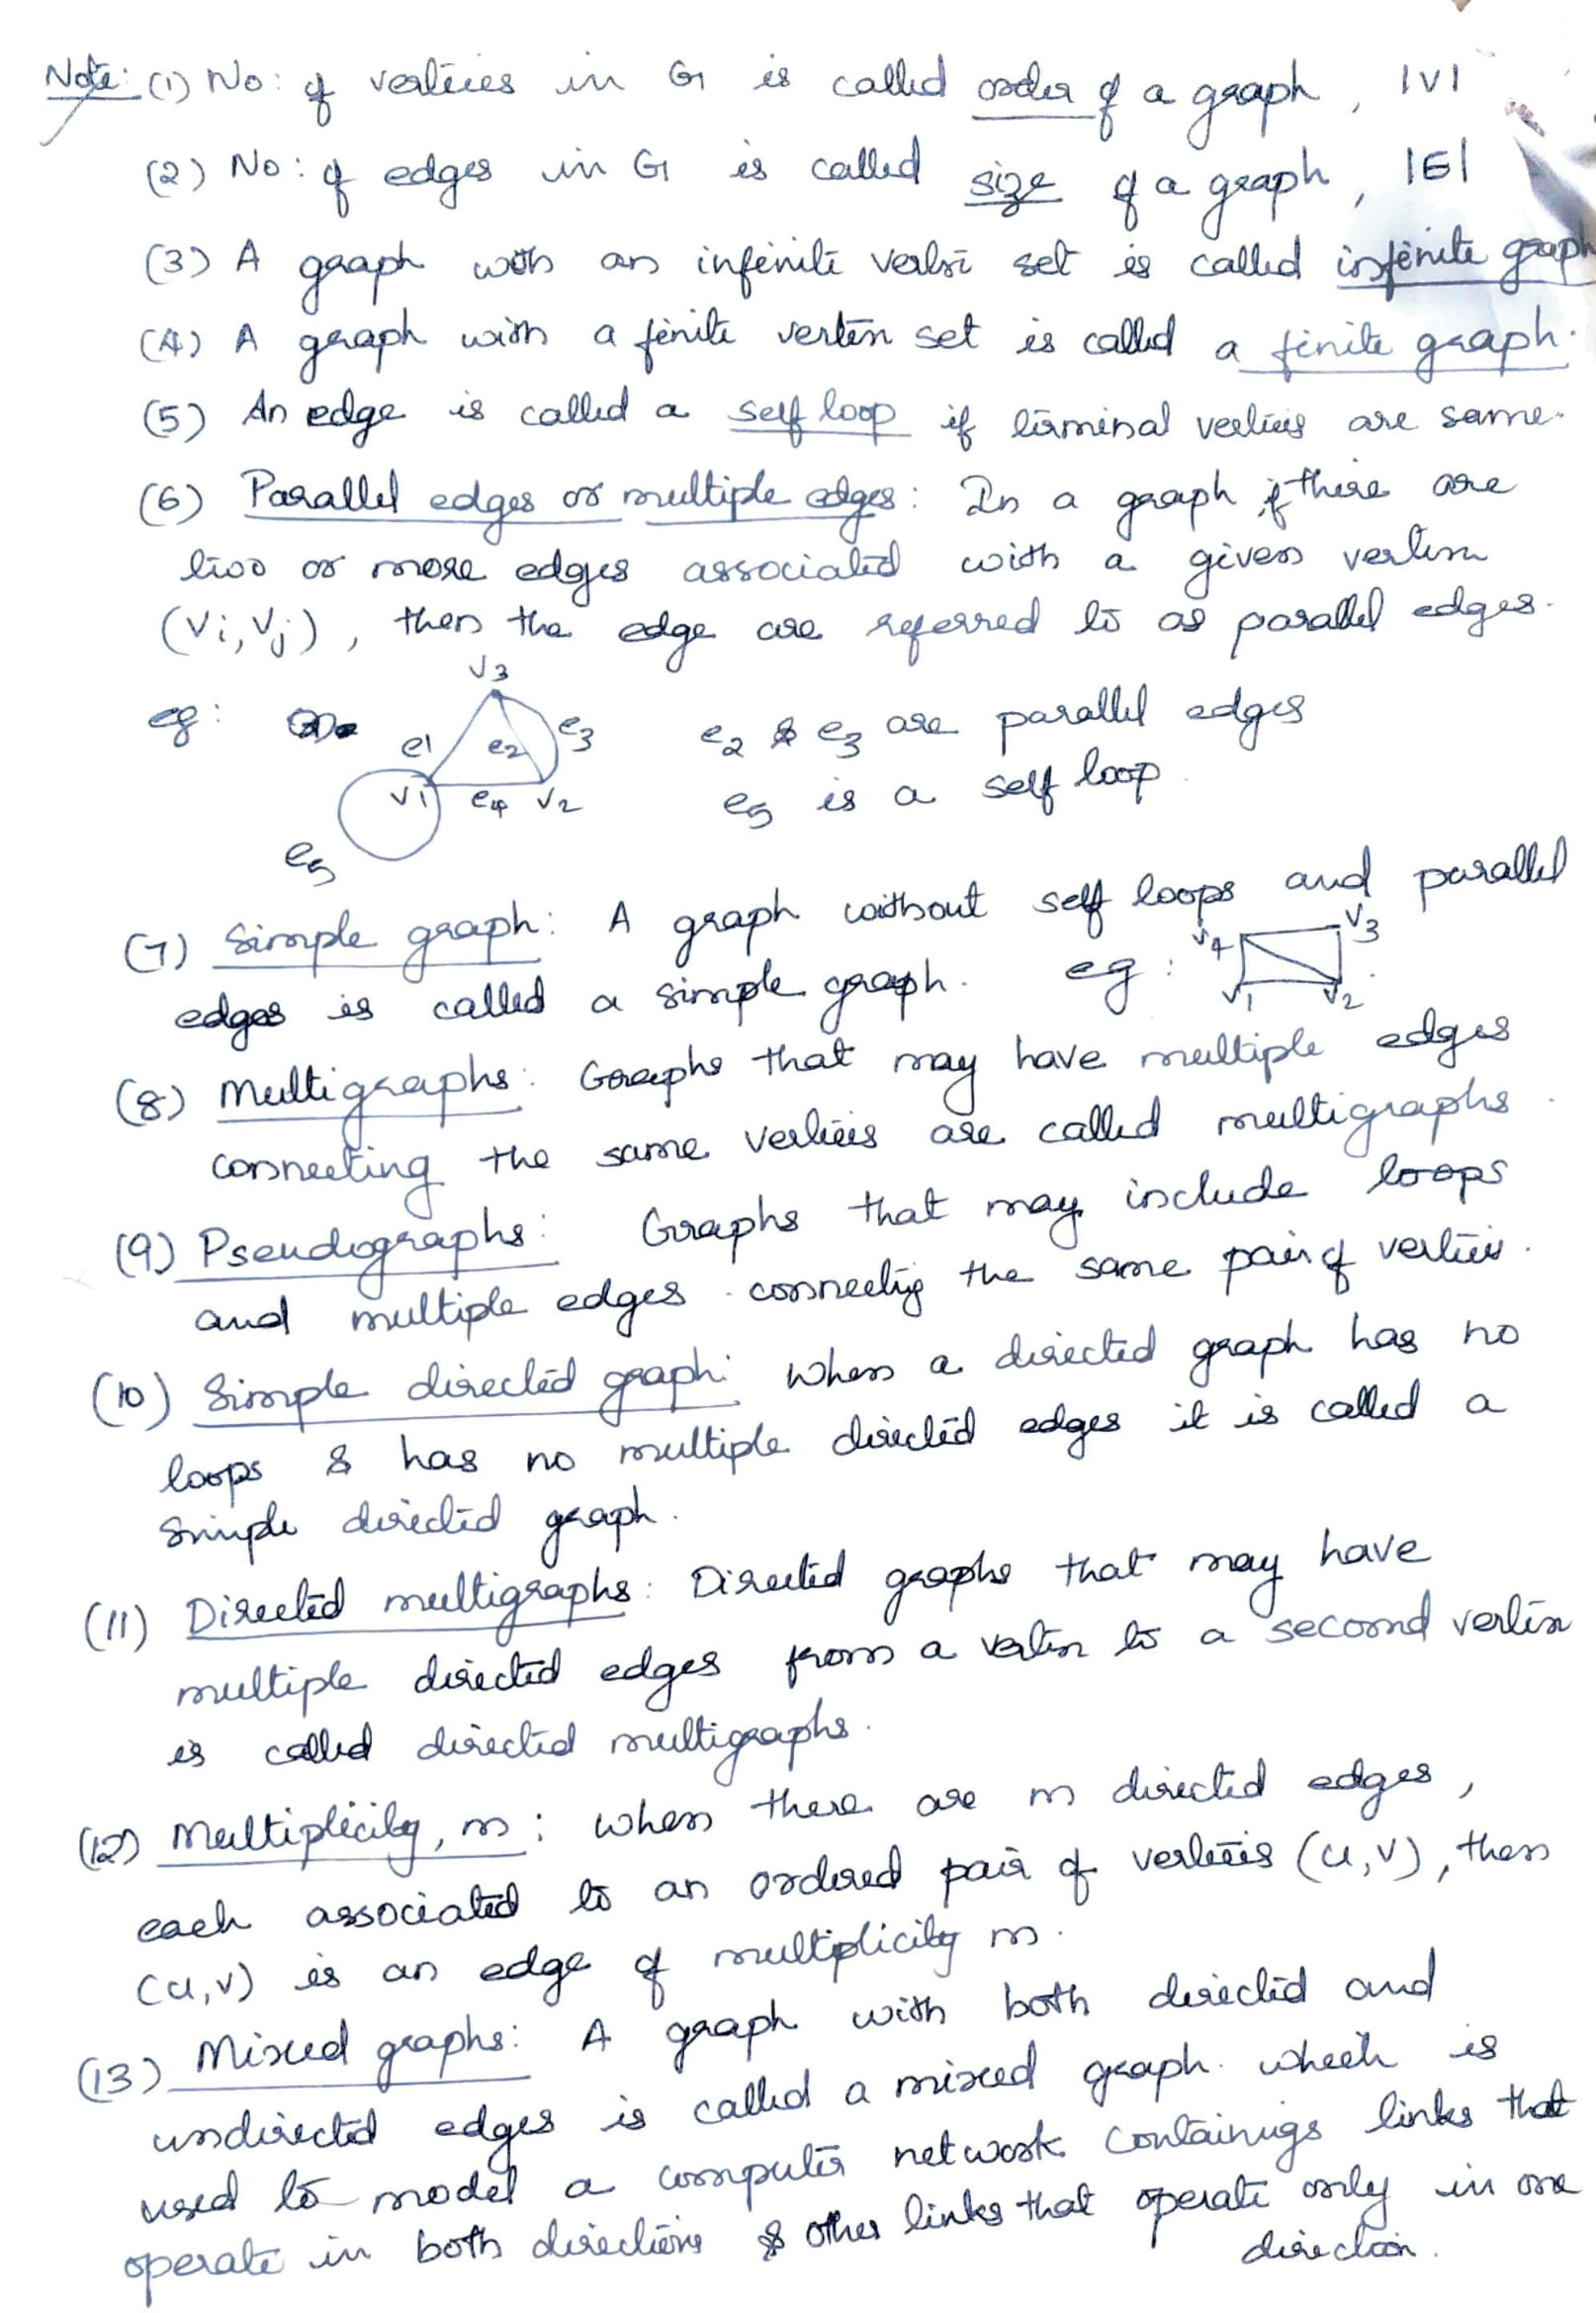 Note: (1) No: of vertices in G is called order of a graph, |V|
(2) No: of edges in G is called size of a graph, |E|
(3) A graph with an infinite vertex set is called infinite graph
(4) A graph with a finite vertex set is called a finite graph.
(5) An edge is called a self loop if terminal vertices are same.
(6) Parallel edges or multiple edges: In a graph if there are
two or more edges associated with a given vertex
(Vi, Vj), then the edge are referred to as parallel edges.
V3
eg: e1 e2 e3 e2 & e3 are parallel edges
V1 e4 V2 e5 is a self loop.
e5
(7) Simple graph: A graph without self loops and parallel
edges is called a simple graph. eg: V4 V3
V1 V2
(8) Multigraphs: Graphs that may have multiple edges
connecting the same vertices are called multigraphs.
(9) Pseudographs: Graphs that may include loops
and multiple edges connectig the same pair of vertices.
(10) Simple directed graph: When a directed graph has no
loops & has no multiple directed edges it is called a
Simple directed graph.
(11) Directed multigraphs: Directed graphs that may have
multiple directed edges from a vertex to a second vertex
is called directed multigraphs.
(12) Multiplicity, m: When there are m directed edges,
each associated to an ordered pair of vertices (u,v), then
(u,v) is an edge of multiplicity m.
(13) Mixed graphs: A graph with both directed and
undirected edges is called a mixed graph. which is
used to model a computer network containings links that
operate in both directions & other links that operate only in one
direction.